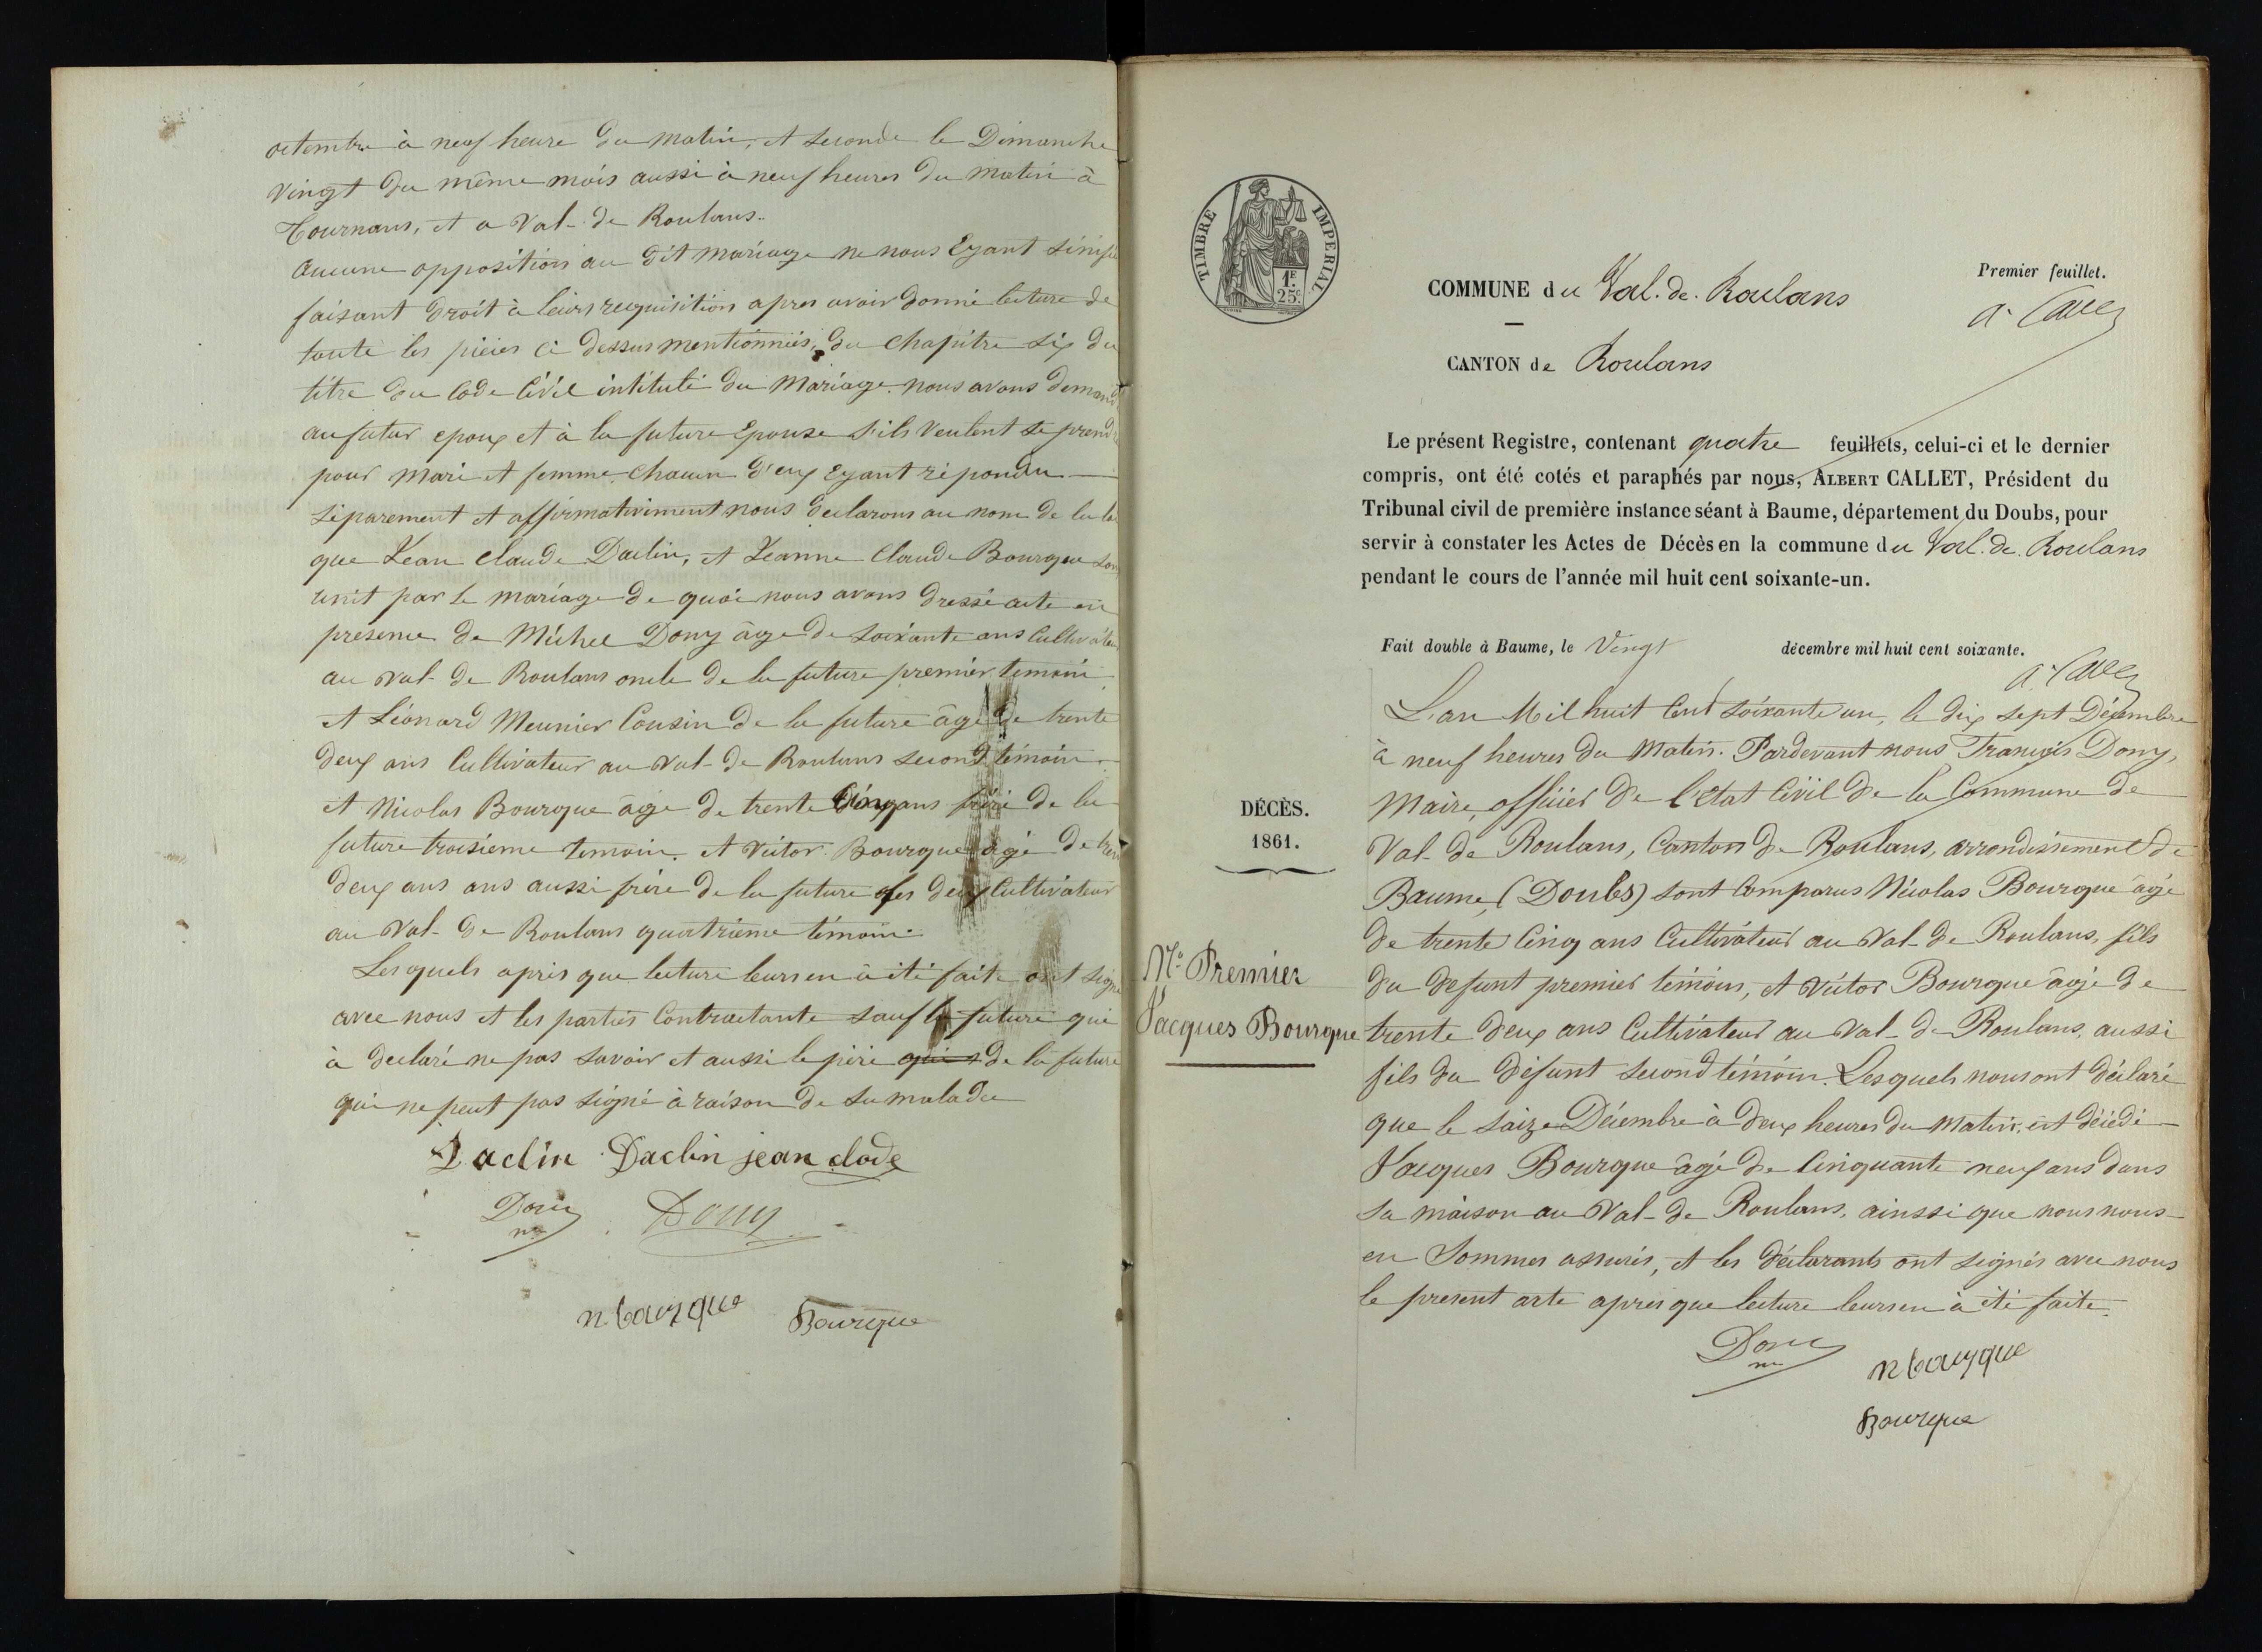 octembre à neuf heure du matin, et seconde le Dimanche
vingt du même mois aussi à neuf heures du matin à
Tournans, et a Val-de Roulans.
Aucune opposition au dit mariage ne nous Eyant
faisant droit à leurs requisition apres avoir donné lecture de
toute les pièces ci dessus mentionniés, du chapitre six du
titre du Code Civil intitulé du Mariage. nous avons demandé
au futur epoux et à la future Epouse s'ils veulent se prendre
pour mari et femme, chacun d'eux Eyant répondu
séparement et affirmativement nous déclarons au nom de la loi
que Jean Claude Daclin, et Jeanne Claude Bourque sont
unit par le mariage de quoi nous avons dressé acte en
présence de Michel Dony âge de soixante ans Cultivateur
au Val-de Roulans oncle de la future premier temoin
et Léonard Meunier Cousin de la future âgé de trente
deux ans Cultivateur au Val-de Roulans second témoin.
et Nicolas Bourque âge de trente Cinq ans frère de la
future troisième temoin. et Victor Bourque âgé de trente
deux ans ans aussi frère de la future les deux Cultivateur
au Val-de Roulans quatrième témoin.
Lesquels après que lecture leurs en à été faite ont signé
avec nous et les parties Contractante sauf la future qui
à declaré ne pas savoir et aussi le père qui de la future
qui ne peut pas signé à raison de sa maladie
Daclin Daclin jean clode
Dony Dony
m
n bourque Bourque
TIMBRE IMPERIAL
1F.
25c.
Premier feuillet.
COMMUNE du Val. de. Roulans
A. Callet
CANTON de Roulans
Le présent Registre, contenant quatre feuillets, celui-ci et le dernier
compris, ont été cotés et paraphés par nous, ALBERT CALLET, Président du
Tribunal civil de première instance séant à Baume, département du Doubs, pour
servir à constater les Actes de Décès en la commune du Val. de. Roulans
pendant le cours de l'année mil huit cent soixante-un.
Fait double à Baume, le Vingt décembre mil huit cent soixante.
A. Callet
DÉCÈS.
1861.
No. Premier
Jacques Bourque
L'an Mil huit Cent soixante un, le dix sept Décembre
à neuf heures du Matin. Pardevant nous François Dony,
Maire, officier de l'état Civil de la Commune de
Val-de Roulans, Canton de Roulans, arrondissement de
Baume, (Doubs) sont Comparus Nicolas Bourque âgé
de trente Cinq ans Cultivateur au Val-de Roulans, fils
du defunt premier témoin, et Victor Bourque âgé de
trente deux ans Cultivateur au Val-de Roulans, aussi
fils du défunt second témoin. Lesquels nous ont déclaré
que le saize Décembre à deux heures du Matin, est décédé
Jacques Bourque âgé de Cinquante neuf ans dans
sa maison au Val-de Roulans, ainssi que nous nous
en Sommes assurés, et les déclarants ont signés avec nous
le present acte apres que lecture leurs en à été faite.
Dony
m
n bourque
Bourque